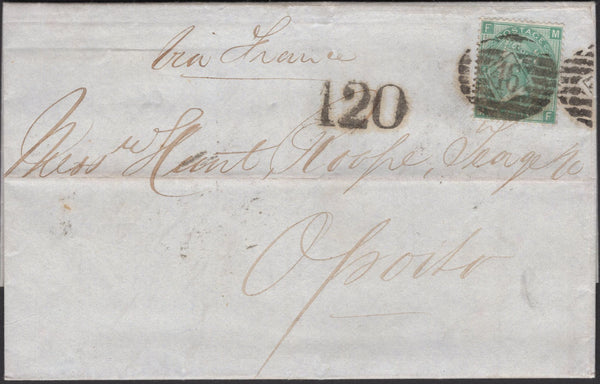 via France
120
F M
POSTAGE
F
Mess.rs Hunt, Roope, Teage & Co
Oporto